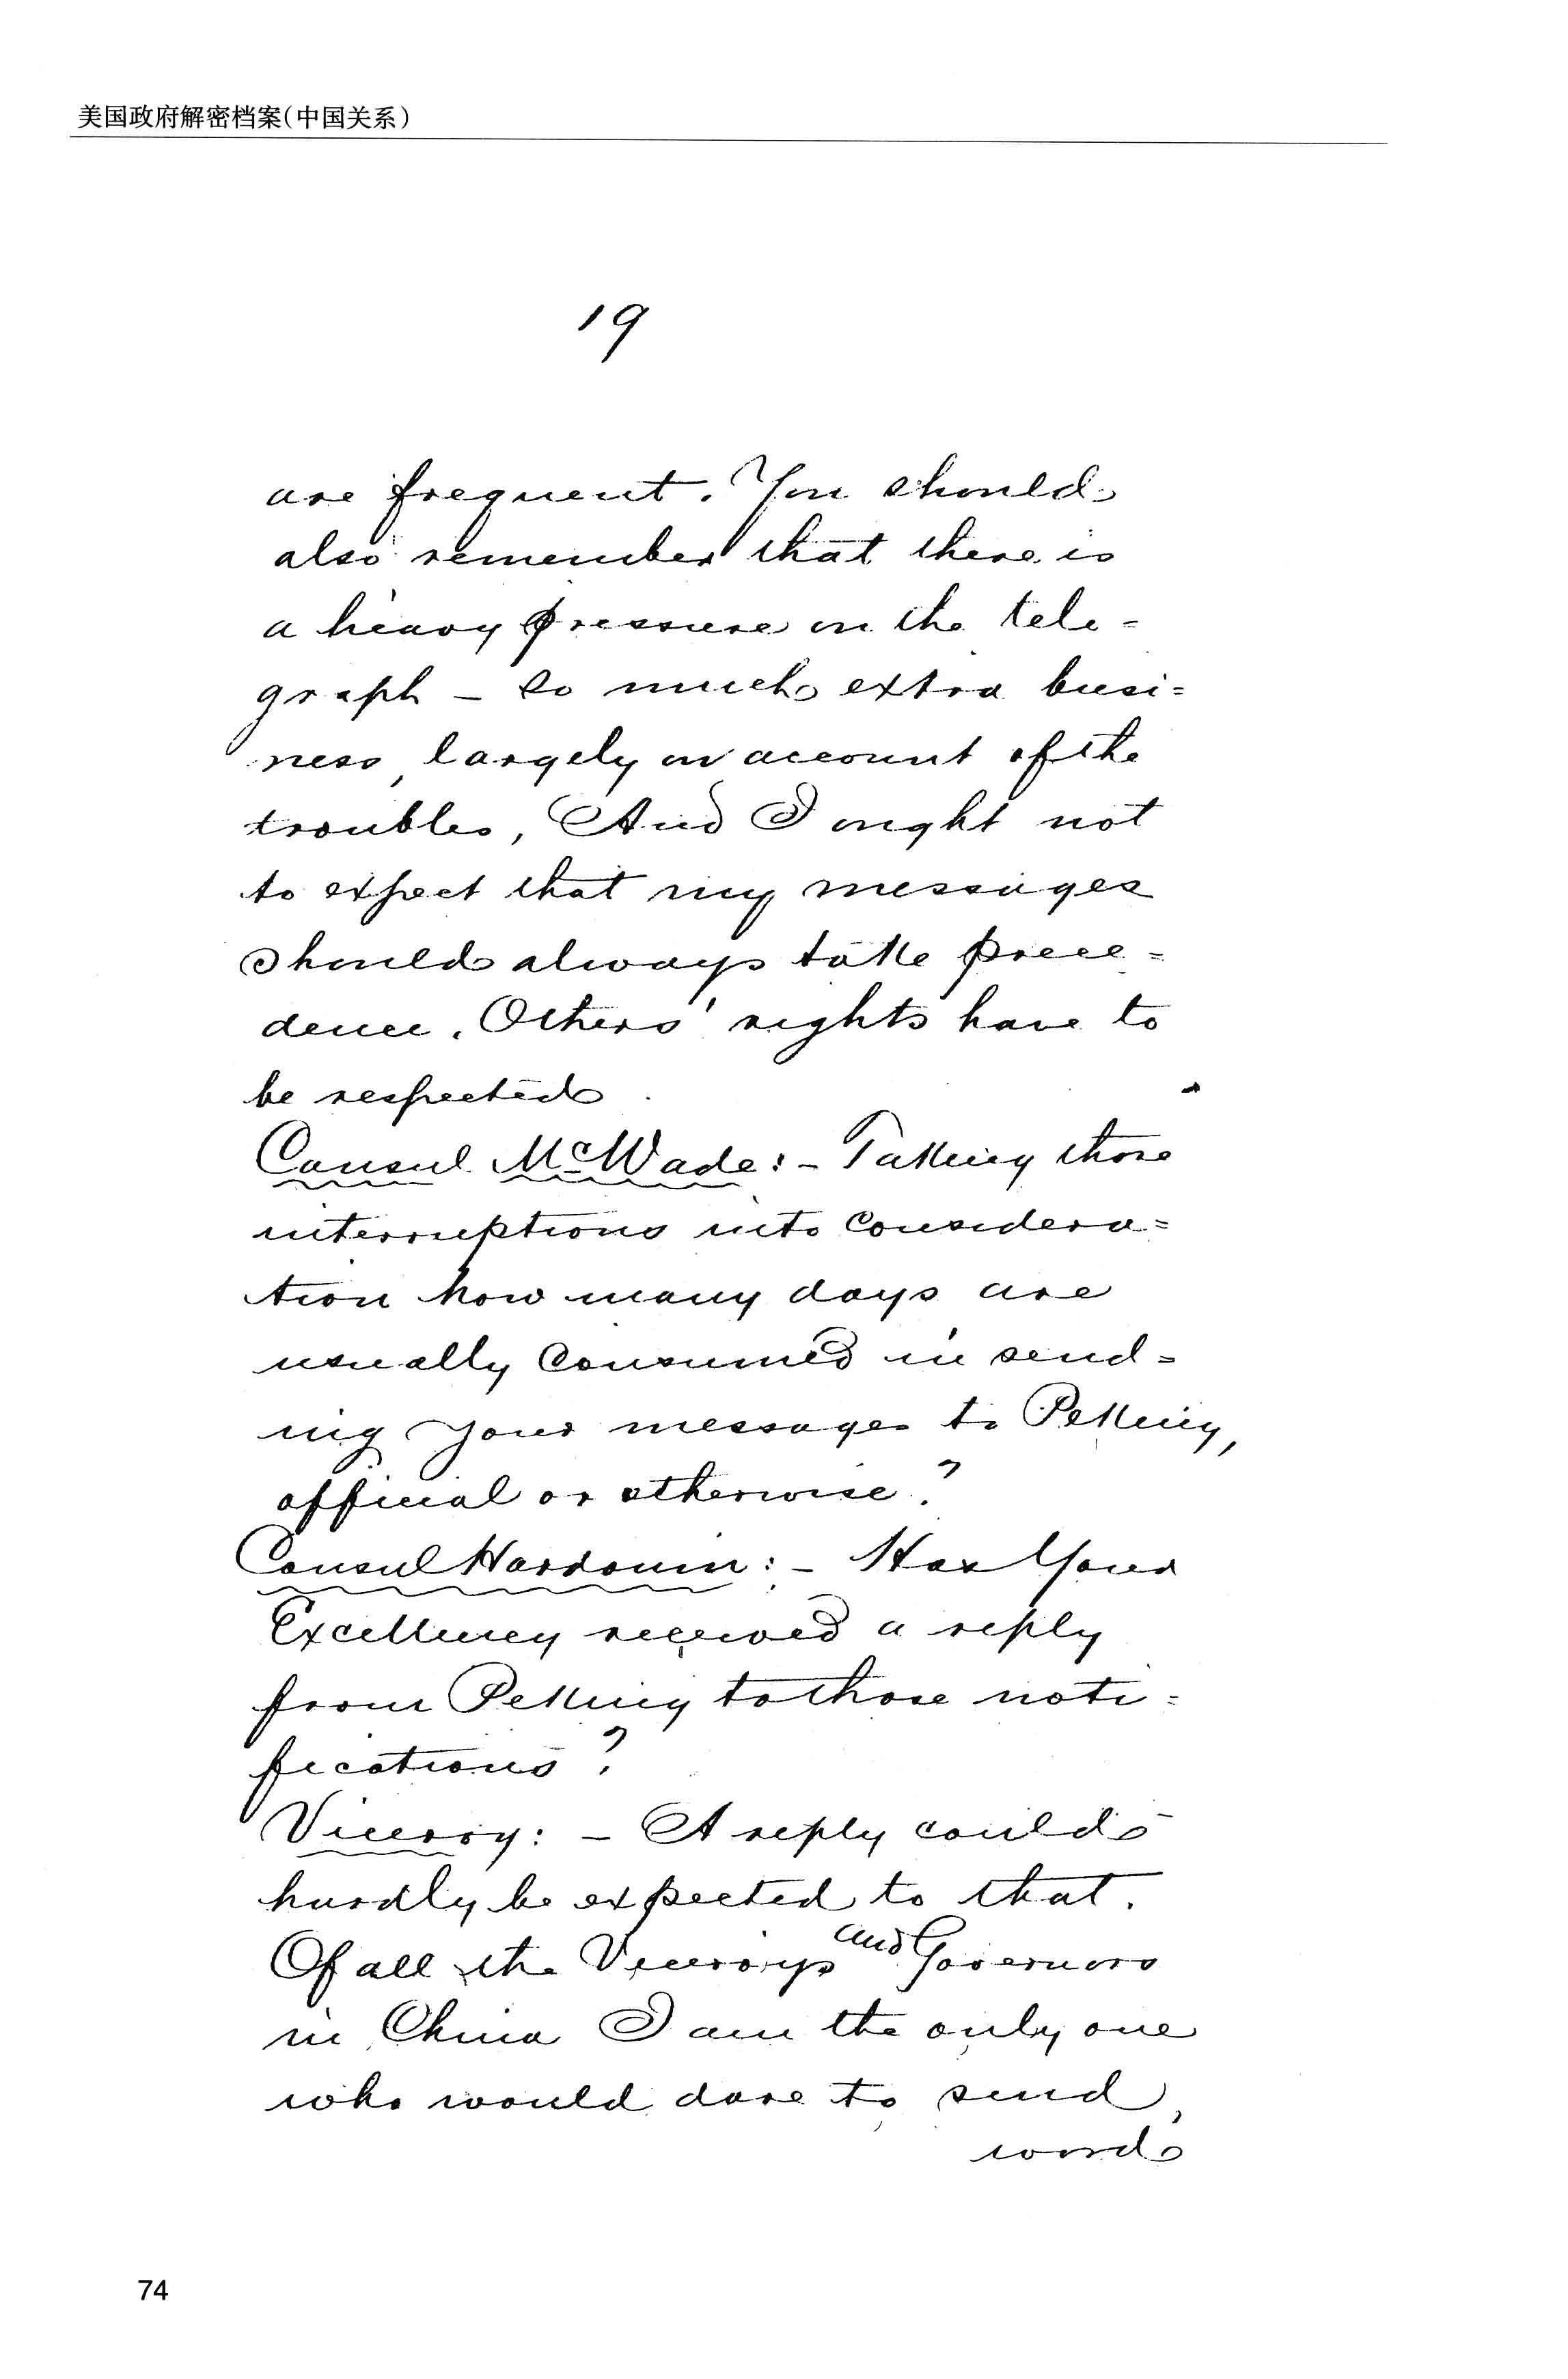 美国政府解密档案(中国关系)
19
are frequent. You should
also remember that there is
a heavy pressure on the tele=
graph – so much extra busi=
ness, largely on account of the
troubles, And I ought not
to expect that my messages
should always take prece=
dence. Others' rights have to
be respected.
Consul McWade:– Taking those
interruptions into Considera=
tion how many days are
usually Consumed in send=
ing your messages to Peking,
official or otherwise?
Consul Hardouin:– Has Your
Excellency received a reply
from Peking to those noti=
fications?
Viceroy:– A reply could
hardly be expected to that.
Of all the Viceroys and Governors
in China I am the only one
who would dare to send,
words
74